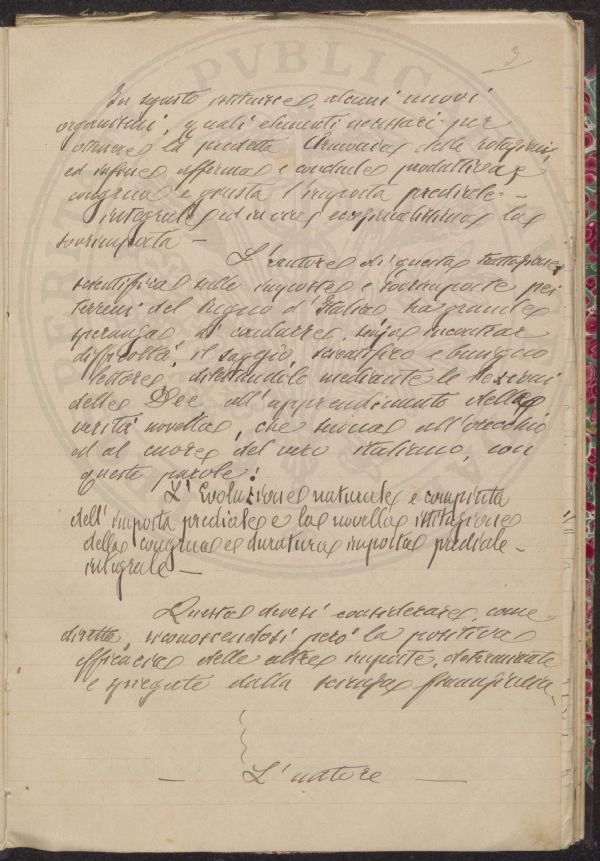 3
In questo istituisce, alcuni nuovi
organismi, quali elementi necessari per
ottenere la predetta armonia delle
ed infine afferma e conclude produttiva,
congrua e giusta l'imposta prediale-
integrale ed in vera la
sovrimposta —
L'autore di questa trattazione
scientifica sulle imposte e sovrimposte pei
terreni del Regno d'Italia ha grande
speranza di condurre, senza incontrar
difficoltà, il saggio, scientifico e benigno
lettore, dilettandolo mediante le Lezioni
delle Dee all'apprendimento della
verità novella, che suona all'orecchio
ed al cuore del vero italiano, con
queste parole:
L'Evoluzione naturale e compiuta
dell'imposta prediale e la novella istituzione
della congrua e duratura imposta prediale-
integrale —
Questa devesi considerare, come
diretta, riconoscendosi però la positiva
efficacia delle altre imposte, determinate
e spiegate dalla scienza finanziaria —
— L'autore —